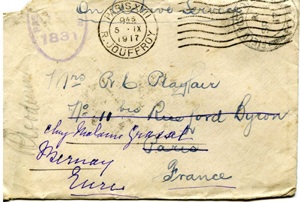 On Active Service
PARIS XVII
5 - IX
1917
R. JOUFFROY
1831
Mrs R. L. Playfair
No 11 bis Rue Lord Byron
chez Madame
Paris
Bernay
Eure
France